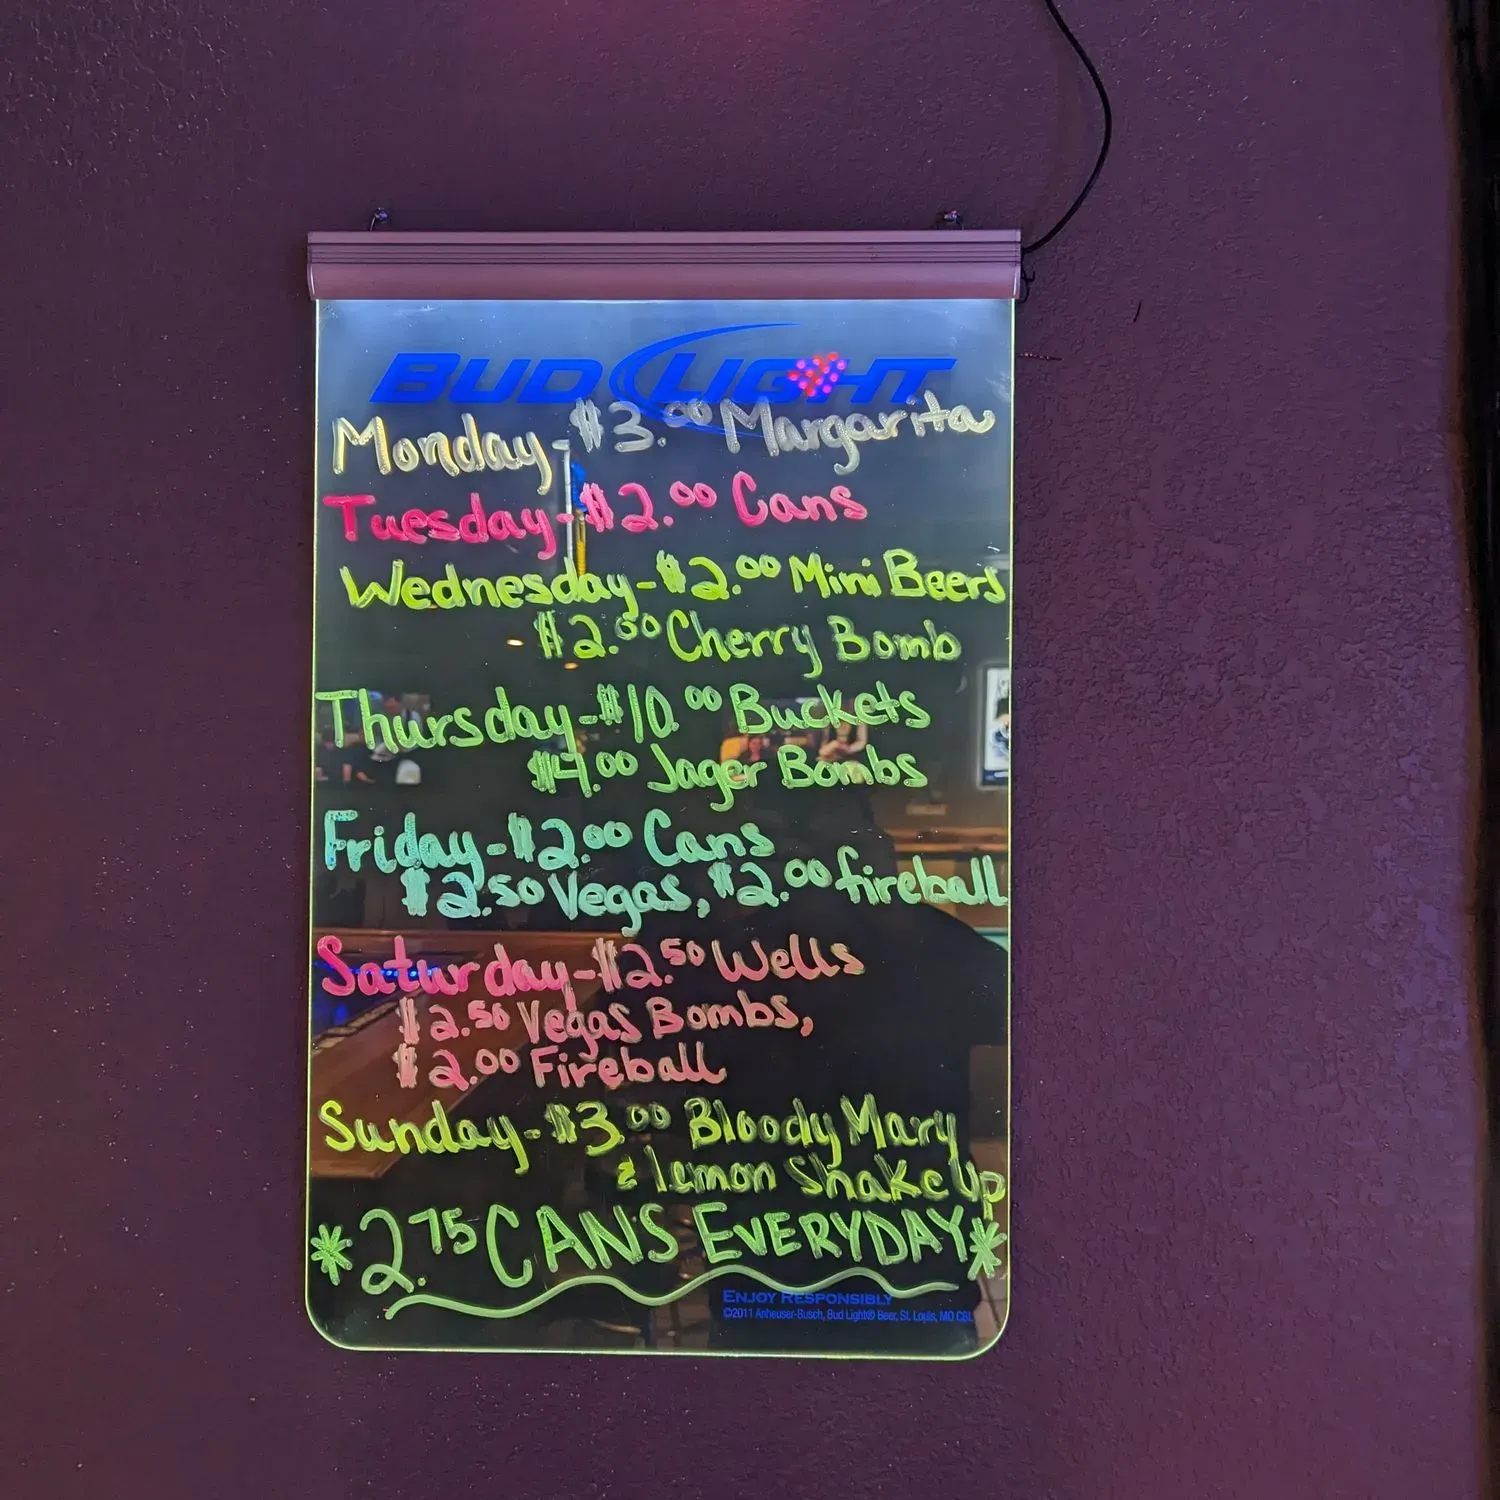 BUD LIGHT
Monday-$3.00 Margarita
Tuesday-$2.00 Cans
Wednesday-$2.00 Mini Beers
$2.00 Cherry Bomb
Thursday-$10.00 Buckets
$4.00 Jager Bombs
Friday-$2.00 Cans
$2.50 Vegas, $2.00 fireball
Saturday-$2.50 Wells
$2.50 Vegas Bombs,
$2.00 Fireball
Sunday-$3.00 Bloody Mary
& lemon ShakeUp
*2.75 CANS EVERYDAY*
ENJOY RESPONSIBLY
©2011 Anheuser-Busch, Bud Light® Beer, St. Louis, MO